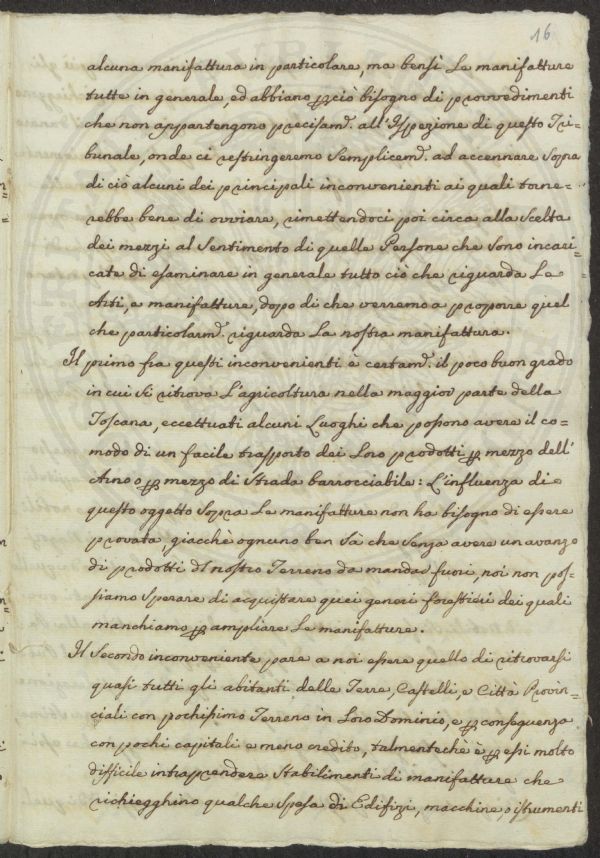 16
alcuna manifattura in particolare, ma bensì Le manifatture
tutte in generale, ed abbiano pciò bisogno di provvedimenti
che non appartengono precisam. all'Ispezione di questo Tri=
bunale, onde ci restringeremo Semplicem. ad accennare Sopra
di ciò alcuni dei principali inconvenienti ai quali torne=
rebbe bene di ovviare, rimettendoci poi circa alla Scelta
dei mezzi al Sentimento di quelle Persone che Sono incari=
cate di esaminare in generale tutto ciò che riguarda Le
Arti, e manifatture, dopo di che verremo a proporre quel
che particolarm. riguarda La nostra manifattura.
Il primo fra questi inconvenienti è certam. il poco buon grado
in cui si ritrova L'agricoltura nella maggior parte della
Toscana, eccettuati alcuni Luoghi che possono avere il co=
modo di un facile trasporto dei Loro prodotti p mezzo dell'
Arno o p mezzo di Strada barrocciabile: L'influenza di
questo oggetto Sopra Le manifatture non ha bisogno di essere
provata, giacchè ognuno ben Sà che Senza avere un avanzo
di prodotti dl nostro Terreno da mandar fuori, noi non pos=
siamo Sperare di acquistare quei generi forestieri dei quali
manchiamo p ampliare Le manifatture.
Il Secondo inconveniente pare a noi essere quello di ritrovarsi
quasi tutti gli abitanti delle Terre, Castelli, e Città Provin=
ciali con pochissimo Terreno in Loro Dominio, e p conseguenza
con pochi capitali e meno credito, talmentechè è p essi molto
difficile intraprendere Stabilimenti di manifatture che
richiegghino qualche Spesa di Edifizi, macchine, o istrumenti